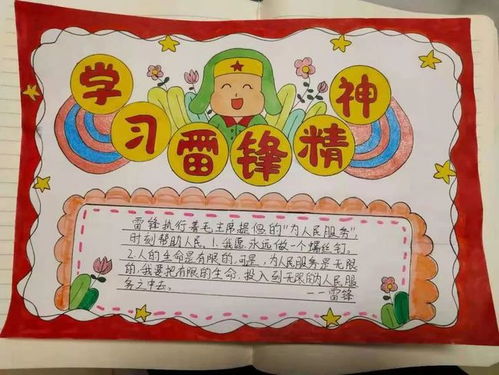 学习雷锋精神
雷锋执行着毛主席提倡的“为人民服务”,
时刻帮助人民。1.我愿永远做一个螺丝钉。
2.人的生命是有限的,可是,为人民服务是无限
的,我要把有限的生命,投入到无限的为人民服
务之中去。
——雷锋